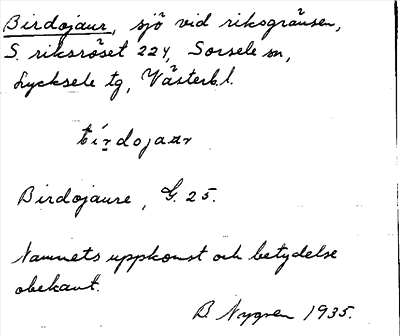 Birdojaur, sjö vid riksgränsen,
S. riksröset 224, Sorsele sn,
Lycksele tg, Västerb. l.
bírdojaur
Birdojaure, G. 25.
Namnets uppkomst och betydelse
obekant.
B. Nygren 1935.